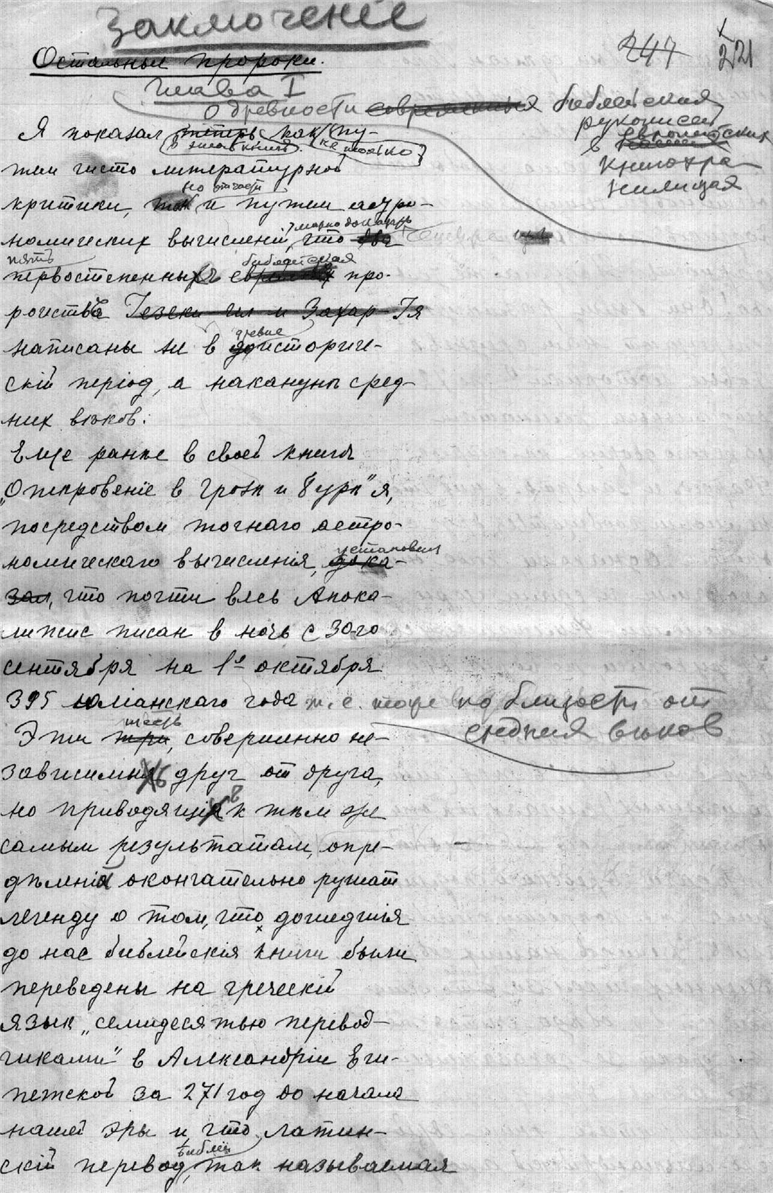 Заключеніе
Остальные пророки.
247 221
Глава I
О древности современныхъ библейских
рукописей
в Европейских
книгохра-
нилищах
Я показал теперь, как пу-
в этой книге не только
тем чисто литературной
но отчасти
критики, так и путем астро-
номических вычислений, что два
пять
библейских
первостепенных еврейских про-
рочеств Іезекіил и Захар-Ія
древне
написаны не в доисториче-
скій період, а накануне сред-
них вѣков.
Еще ранѣе в своей книгѣ
„Откровеніе в Грозѣ и Бурѣ" я,
посредством точнаго астро-
номическаго вычисленія, дока-
установил
зал, что почти весь Апока-
липсис писан в ночь с 30го
сентября на 1е октября
395 юліанскаго года т. е. тоже по близости от
средних вѣков
шесть
Эти три, совершенно не-
зависимых друг от друга,
но приводящих к тѣм же
самым результатам, опре-
дѣленій окончательно рушат
легенду о том, что дошедшія
до нас библейскія книги были
переведены на греческій
язык „семидесятью перевод-
чиками" в Александріи Еги-
петской за 271 год до начала
нашей эры и что латин-
Библіи
скій перевод, так называемая